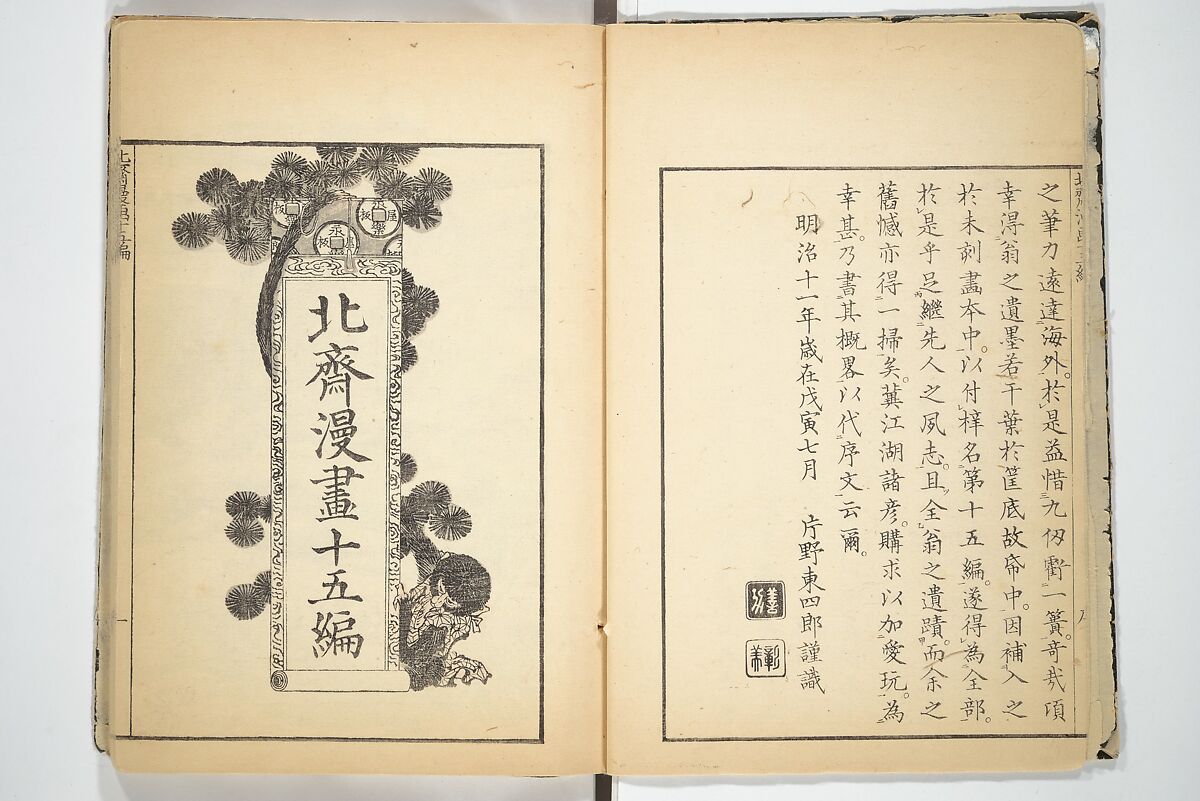 之筆力遠達海外。於是益惜九仭虧一簣。奇哉項
幸得翁之遺墨若干葉於筐底故帋中。因補入之
於未刻畵本中。以付梓名第十五編。遂得為全部。
於是乎足繼先人之夙志。且全翁之遺蹟。而余之
舊憾亦得一掃矣。冀江湖諸彦。購求以加愛玩。為
幸甚。乃書其概畧以代序文云爾。
明治十一年歳在戊寅七月　片野東四郎謹識
北齋漫畫十五編